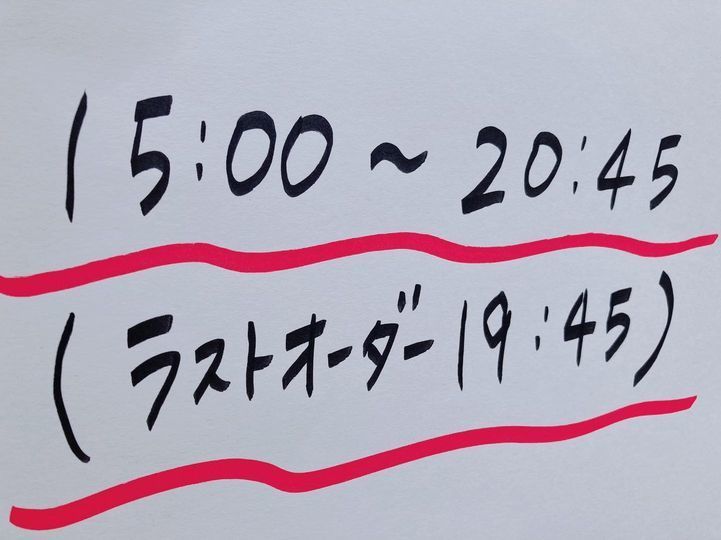 15:00～20:45
(ラストオーダー19:45)